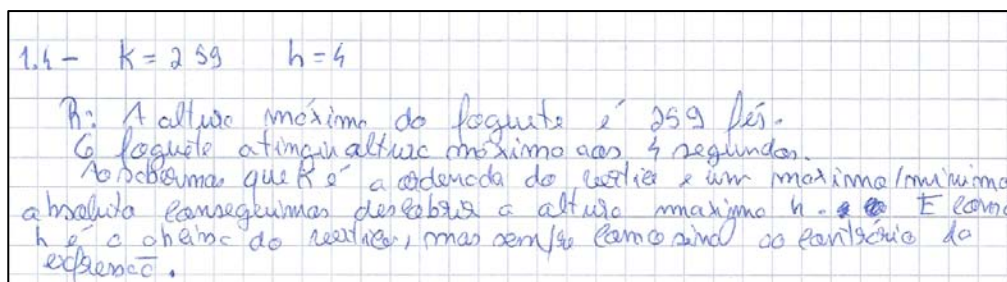 1.4 - K = 259 h = 4
R: A altura máxima do foguete é 259 pés.
O foguete atingiu altura máxima aos 4 segundos.
Ao sabermos que K é a ordenada do vertice e um maximo/minimo
absoluto conseguimos descobrir a altura maxima h. E como
h é o do vertice, mas sempre com o sinal ao contrário da
expressão.